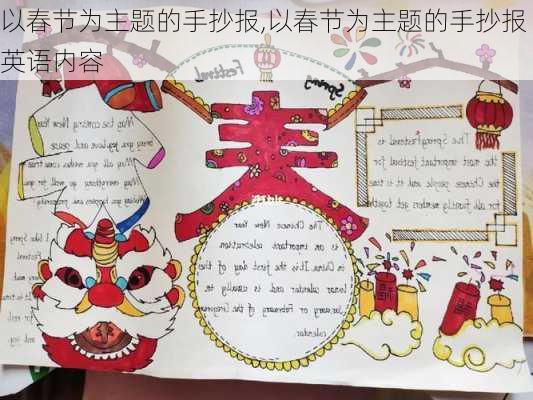 以春节为主题的手抄报,以春节为主题的手抄报
英语内容
Spring Festival
春
May the coming New Year
bring you joy love and peace
The Spring Festival is
the most important festival for
the Chinese people and it is time
for all family members get together
The Chinese New
Year
is an important
celebration
in China. It is the first day of the
lunar calendar and is usually in
January or February of the Gregorian
calendar.
I like Spring
Festival